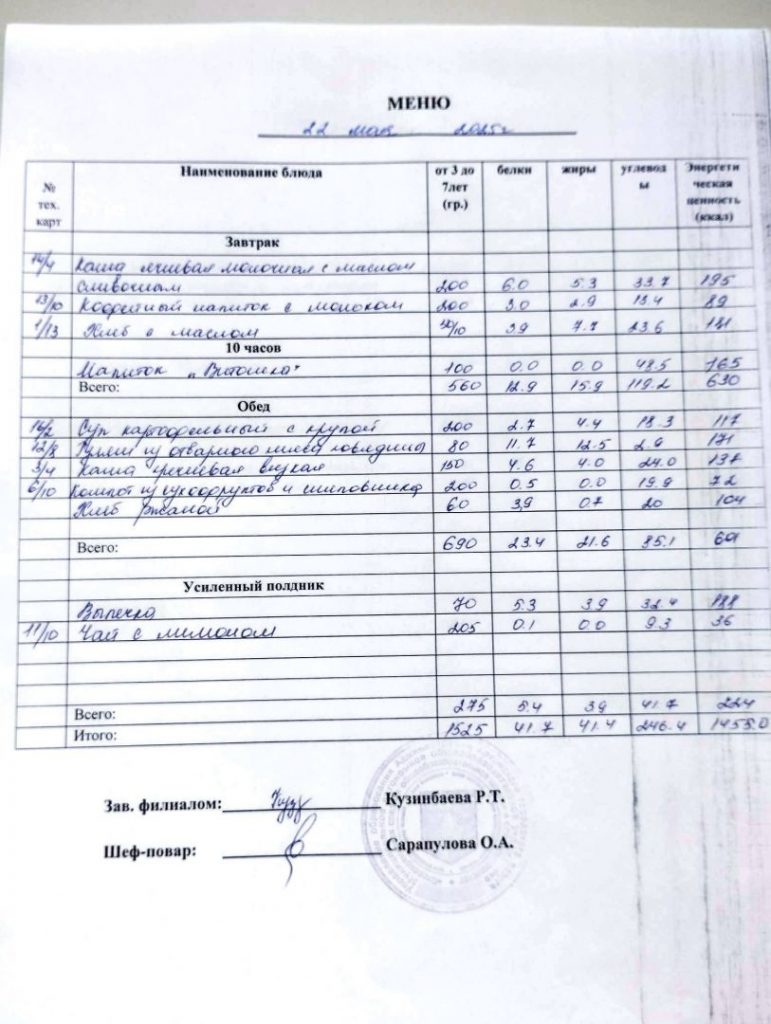 МЕНЮ
22 мая 2025г
№ тех. карт | Наименование блюда | от 3 до 7лет (гр.) | белки | жиры | углеводы | Энергетическая ценность (ккал)
Завтрак
14/4 Каша ячневая молочная с маслом
сливочным 200 6.0 5.3 33.7 195
13/10 Кофейный напиток с молоком 200 3.0 2.9 13.4 89
1/13 Хлеб с маслом 50/10 3.9 7.7 23.6 181
10 часов
Напиток „Витошка" 100 0.0 0.0 48.5 165
Всего: 560 12.9 15.9 119.2 630
Обед
16/2 Суп картофельный с крупой 200 2.7 4.4 18.3 117
12/8 Гуляш из отварного мяса говядины 80 11.7 12.5 2.9 171
3/4 Каша гречневая вязкая 150 4.6 4.0 24.0 137
6/10 Компот из сухофруктов и шиповника 200 0.5 0.0 19.9 72
Хлеб ржаной 60 3,9 0.7 20 104
Всего: 690 23.4 21.6 85.1 601
Усиленный полдник
Выпечка 70 5.3 3.9 32.4 188
11/10 Чай с лимоном 205 0.1 0.0 9.3 36
Всего: 275 5.4 3.9 41.7 224
Итого: 1525 41.7 41.4 246.4 1455.0
Зав. филиалом: Кузинбаева Р.Т.
Шеф-повар: Сарапулова О.А.